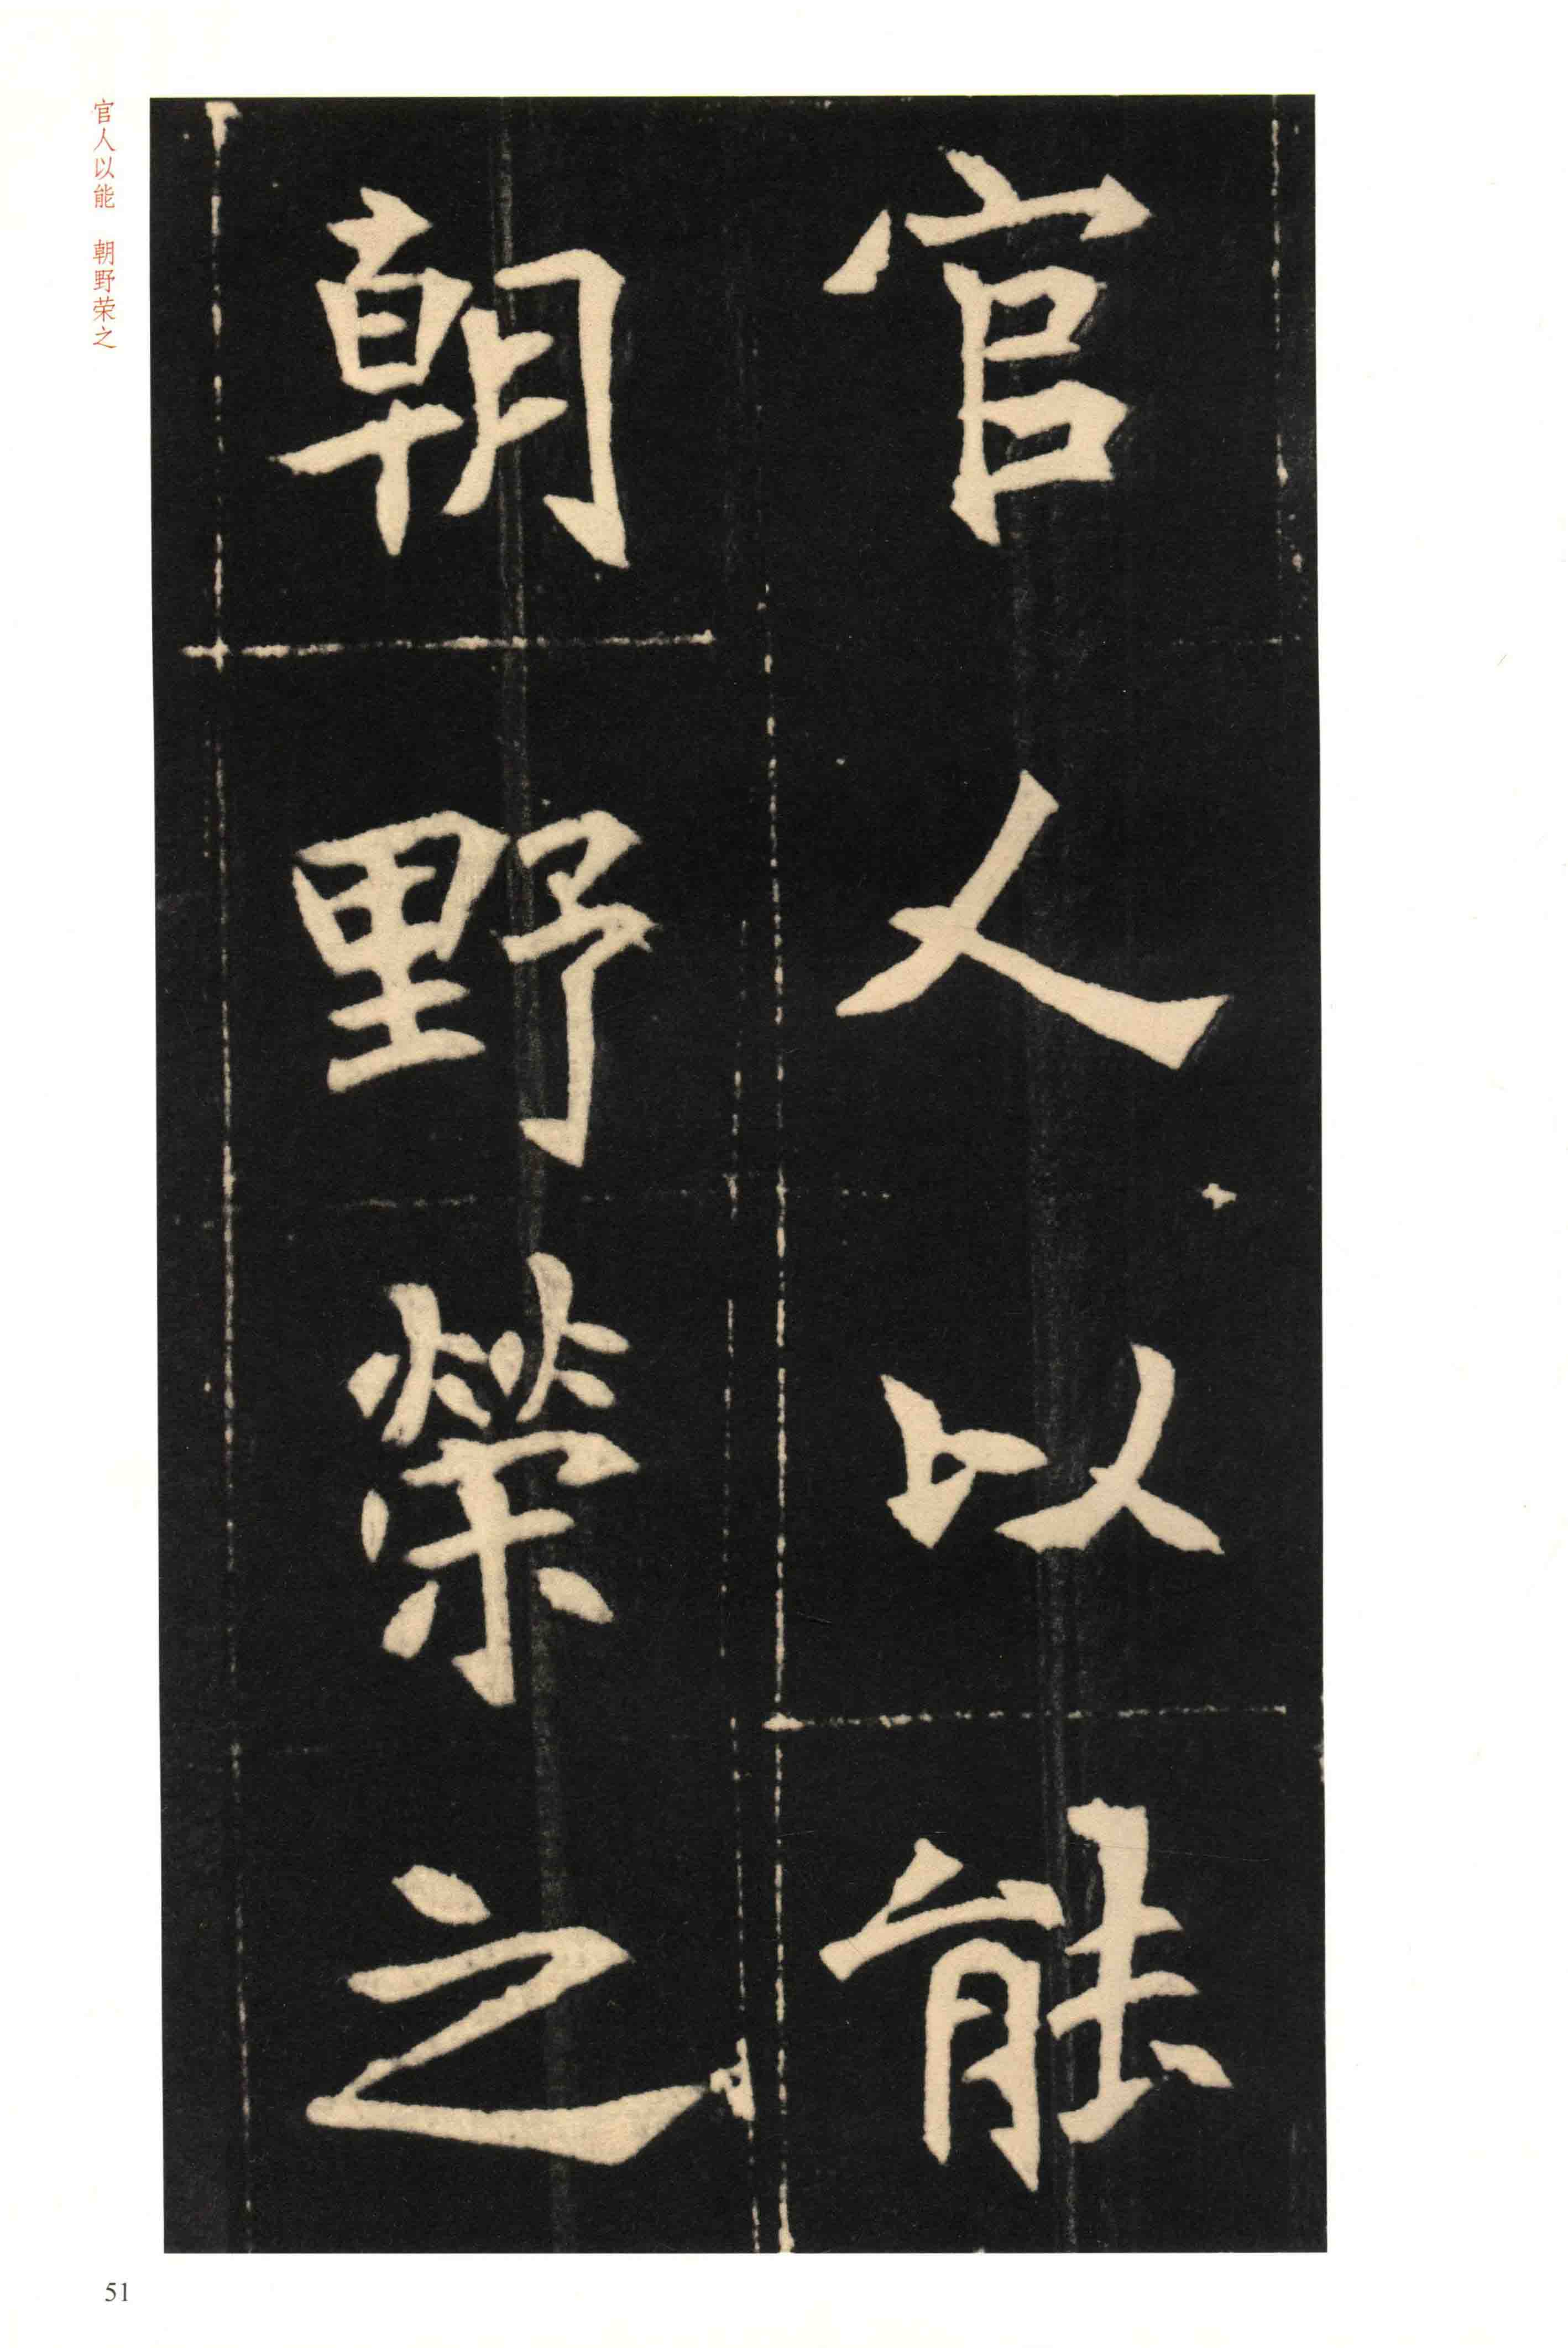 官人以能
朝野榮之
官人以能　朝野荣之
51